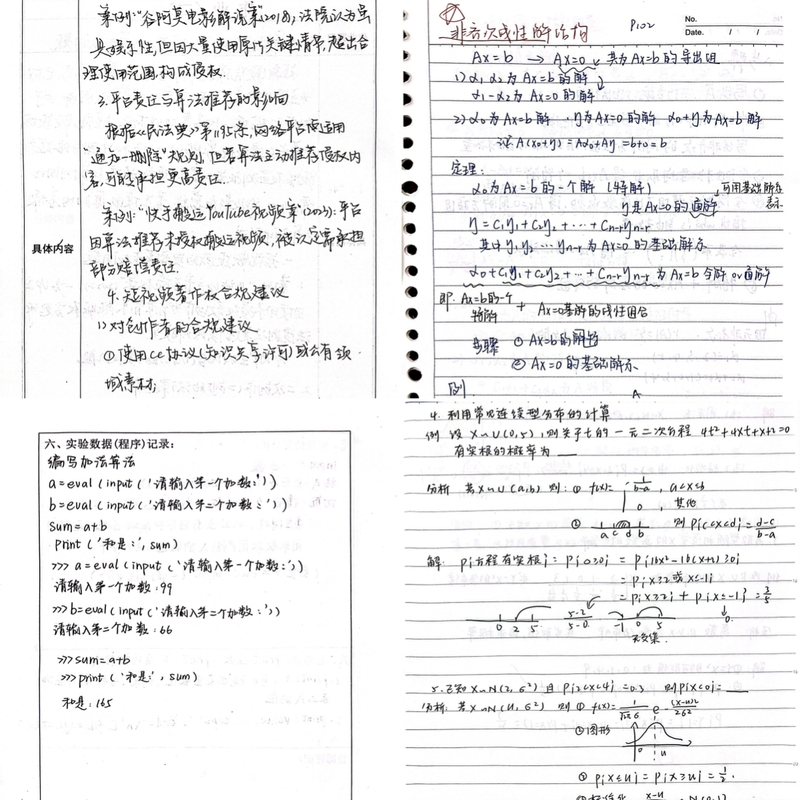 案例:"谷阿莫电影解说案"(2018), 法院认为虽
具娱乐性,但因大量使用原片关键情节,超出合
理使用范围,构成侵权.
3.平台责任与算法推荐的影响
根据《民法典》第1195条,网络平台应适用
"通知—删除"规则,但若算法主动推荐侵权内
容,可能承担更高责任.
案例:"快手搬运YouTube视频案"(2023):平台
因算法推荐未授权搬运视频,被认定需承担
部分赔偿责任.
具体内容
4.短视频著作权合规建议
1)对创作者的合规建议
①使用CC协议(知识共享许可)或公有领
域素材.
非齐次线性解结构
P102
No.
Date. / /
Ax=b → Ax=0 为Ax=b的导出组
1) α1,α2为Ax=b的解
α1-α2为Ax=0的解
2) α0为Ax=b解 η为Ax=0的解 α0+η为Ax=b解
证A(α0+η)=Aα0+Aη=b+0=b
定理:
α0为Ax=b的一个解(特解)
可用基础解系表示
η是Ax=0的通解
η=C1η1+C2η2+…+Cn-rηn-r
其中η1,η2…ηn-r为Ax=0的基础解系
α0+C1η1+C2η2+…+Cn-rηn-r为Ax=b全解 or 通解
即: Ax=b的一个特解 + Ax=0基解的线性组合
步骤 ①Ax=b的解
②Ax=0的基础解系
例
六、实验数据(程序)记录:
编写加法算法
a=eval(input('请输入第一个加数:'))
b=eval(input('请输入第二个加数:'))
sum=a+b
print('和是:',sum)
>>> a=eval(input('请输入第一个加数:'))
请输入第一个加数:99
>>>b=eval(input('请输入第二个加数:'))
请输入第二个加数:66
>>>sum=a+b
>>>print('和是:',sum)
和是:165
4. 利用常见连续型分布的计算
例 设X~U(0,5),则关于t的一元二次方程 4t²+4xt+x+2=0
有实根的概率为 __
分析 若X~U(a,b) 则: ① f(x)= { 1/(b-a), a<x<b
0, 其他
② a c d b 则P{c<x<d}=(d-c)/(b-a)
解: P{方程有实根}=P{Δ≥0}=P{16x²-16(x+2)≥0}
=P{x≥2或x≤-1}
=P{x≥2}+P{x≤-1}=3/5
0 2 5 (5-2)/(5-0) -1 0 5 0
无交集.
5.已知X~N(2,σ²)且P{2<x<4}=0.3 则P{x<0}=__
分析: 若X~N(u,σ²) 则 ① f(x)=1/(√2π σ) e^-(x-u)²/2σ²
②图形
0 u
③ P{x≤u}=P{x≥u}=1/2.